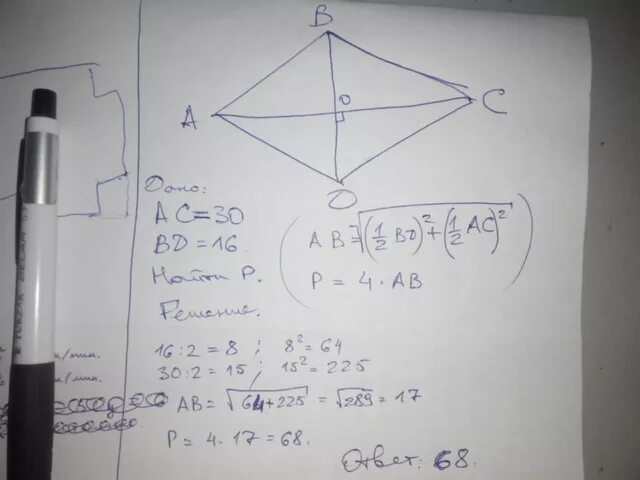 B
A
O
C
D
Дано:
AC = 30
BD = 16.
Найти P.
(AB = √(1/2 BD)² + (1/2 AC)²
P = 4 · AB)
Решение.
16 : 2 = 8 ; 8² = 64
30 : 2 = 15 ; 15² = 225
AB = √64 + 225 = √289 = 17
P = 4 · 17 = 68.
Ответ: 68.
/мин.
/мин.